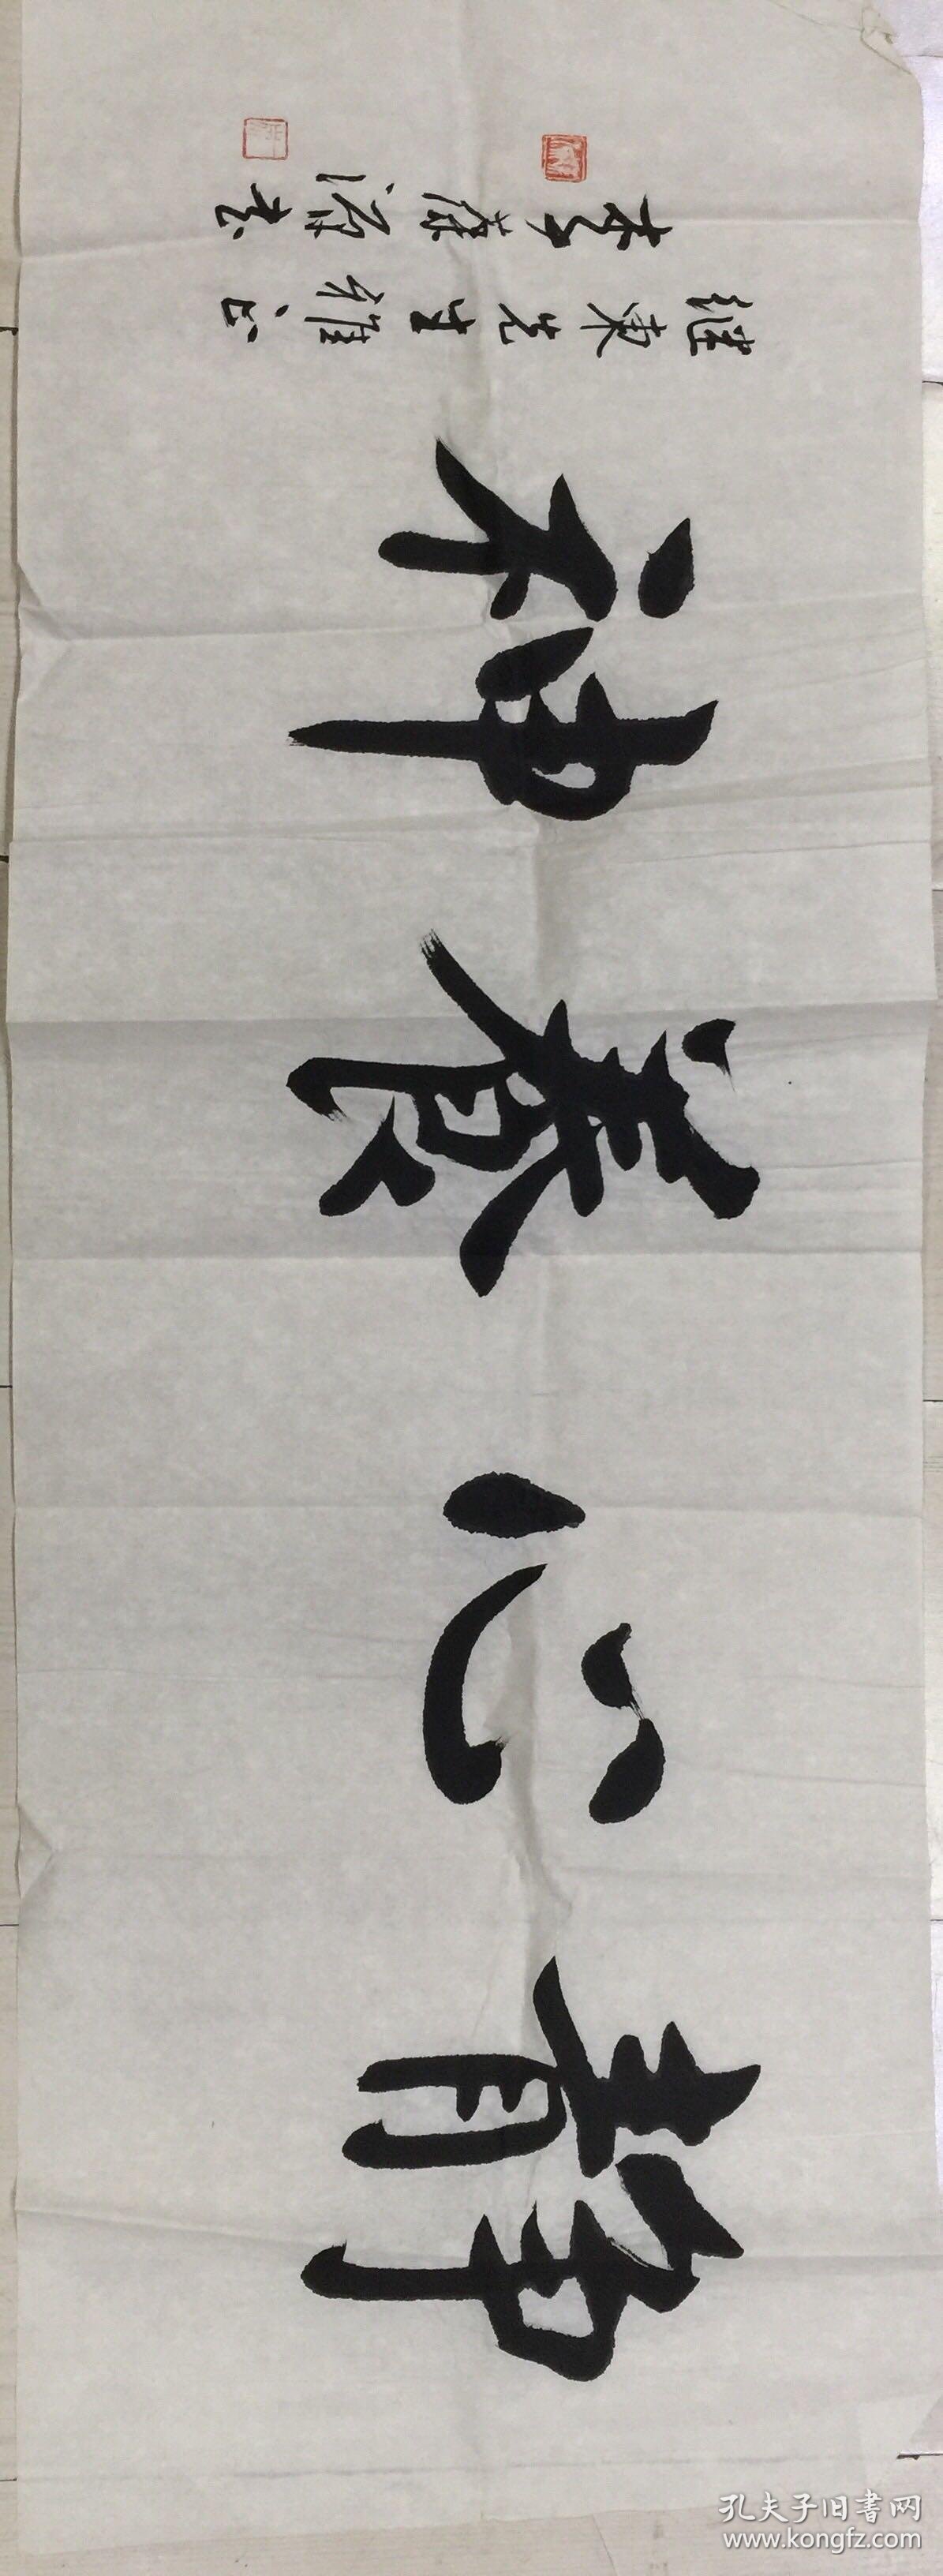 静心養神
继東先生雅正
李 源书
孔夫子旧书网
www.kongfz.com